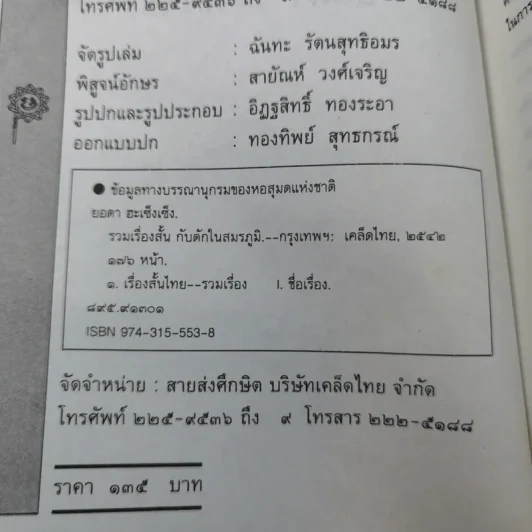 โทรศัพท์ ๒๒๕-๙๕๓๖ ถึง
จัดรูปเล่ม : ฉันทะ รัตนสุทธิอมร
พิสูจน์อักษร : สายัณห์ วงศ์เจริญ
รูปปกและรูปประกอบ : อิฏฐสิทธิ์ ทองระอา
ออกแบบปก : ทองทิพย์ สุทธกรณ์
● ข้อมูลทางบรรณานุกรมของหอสมุดแห่งชาติ
ยอดา ฮะเซ็งเซ็ง.
รวมเรื่องสั้น กับดักในสมรภูมิ.--กรุงเทพฯ: เคล็ดไทย, ๒๕๔๒
๑๗๖ หน้า.
๑. เรื่องสั้นไทย--รวมเรื่อง I. ชื่อเรื่อง.
๘๙๕.๙๑๓๐๑
ISBN 974-315-553-8
จัดจำหน่าย : สายส่งศึกษิต บริษัทเคล็ดไทย จำกัด
โทรศัพท์ ๒๒๕-๙๕๓๖ ถึง ๙ โทรสาร ๒๒๒-๕๑๘๘
ราคา ๑๓๕ บาท
ในการ